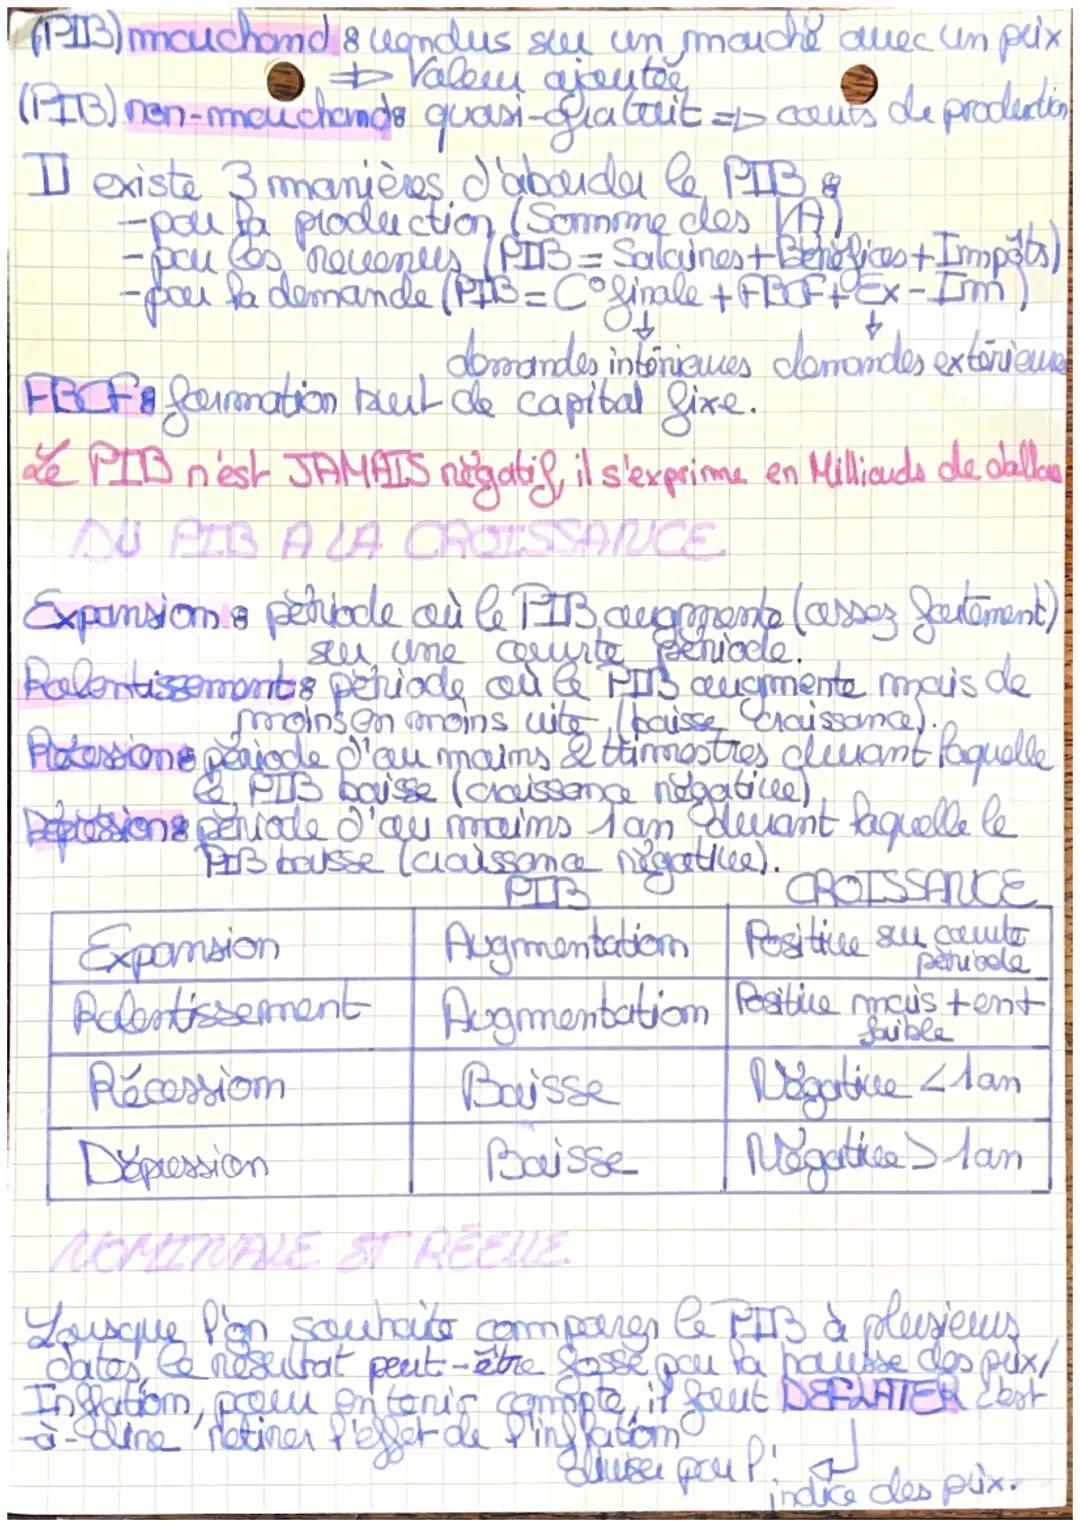 (PIB) marchand : vendus sur un marché avec un prix
⇒ Valeur ajoutée
(PIB) non-marchand : quasi-gratuit ⇒ couts de production
Il existe 3 manières d'aborder le PIB :
- par la production (Somme des VA)
- par les revenus (PIB = Salaires + Bénéfices + Impôts)
- par la demande (PIB = C° finale + FBCF + Ex - Im)
↓ ↓
demandes intérieures demandes extérieures
FBCF : formation brut de capital fixe.
Le PIB n'est JAMAIS négatif, il s'exprime en Milliards de dollars
DU PIB A LA CROISSANCE
Expansion : période où le PIB augmente (assez fortement)
sur une courte période.
Ralentissement : période où le PIB augmente mais de
moins en moins vite (baisse croissance).
Récession : période d'au moins 2 trimestres durant laquelle
le PIB baisse (croissance négative)
Dépression : période d'au moins 1 an durant laquelle le
PIB baisse (croissance négative).
PIB CROISSANCE
Expansion Augmentation Positive sur courte
période
Ralentissement Augmentation Positive mais + ent +
faible
Récession Baisse Négative < 1 an
Dépression Baisse Négative > 1 an
NOMINALE ET RÉELLE
Lorsque l'on souhaite comparer le PIB à plusieurs
dates, le résultat peut-être fossé par la hausse des prix/
Inflation, pour en tenir compte, il faut DEFLATER c'est
-à-dire retirer l'effet de l'inflation
diviser par l'
indice des prix.